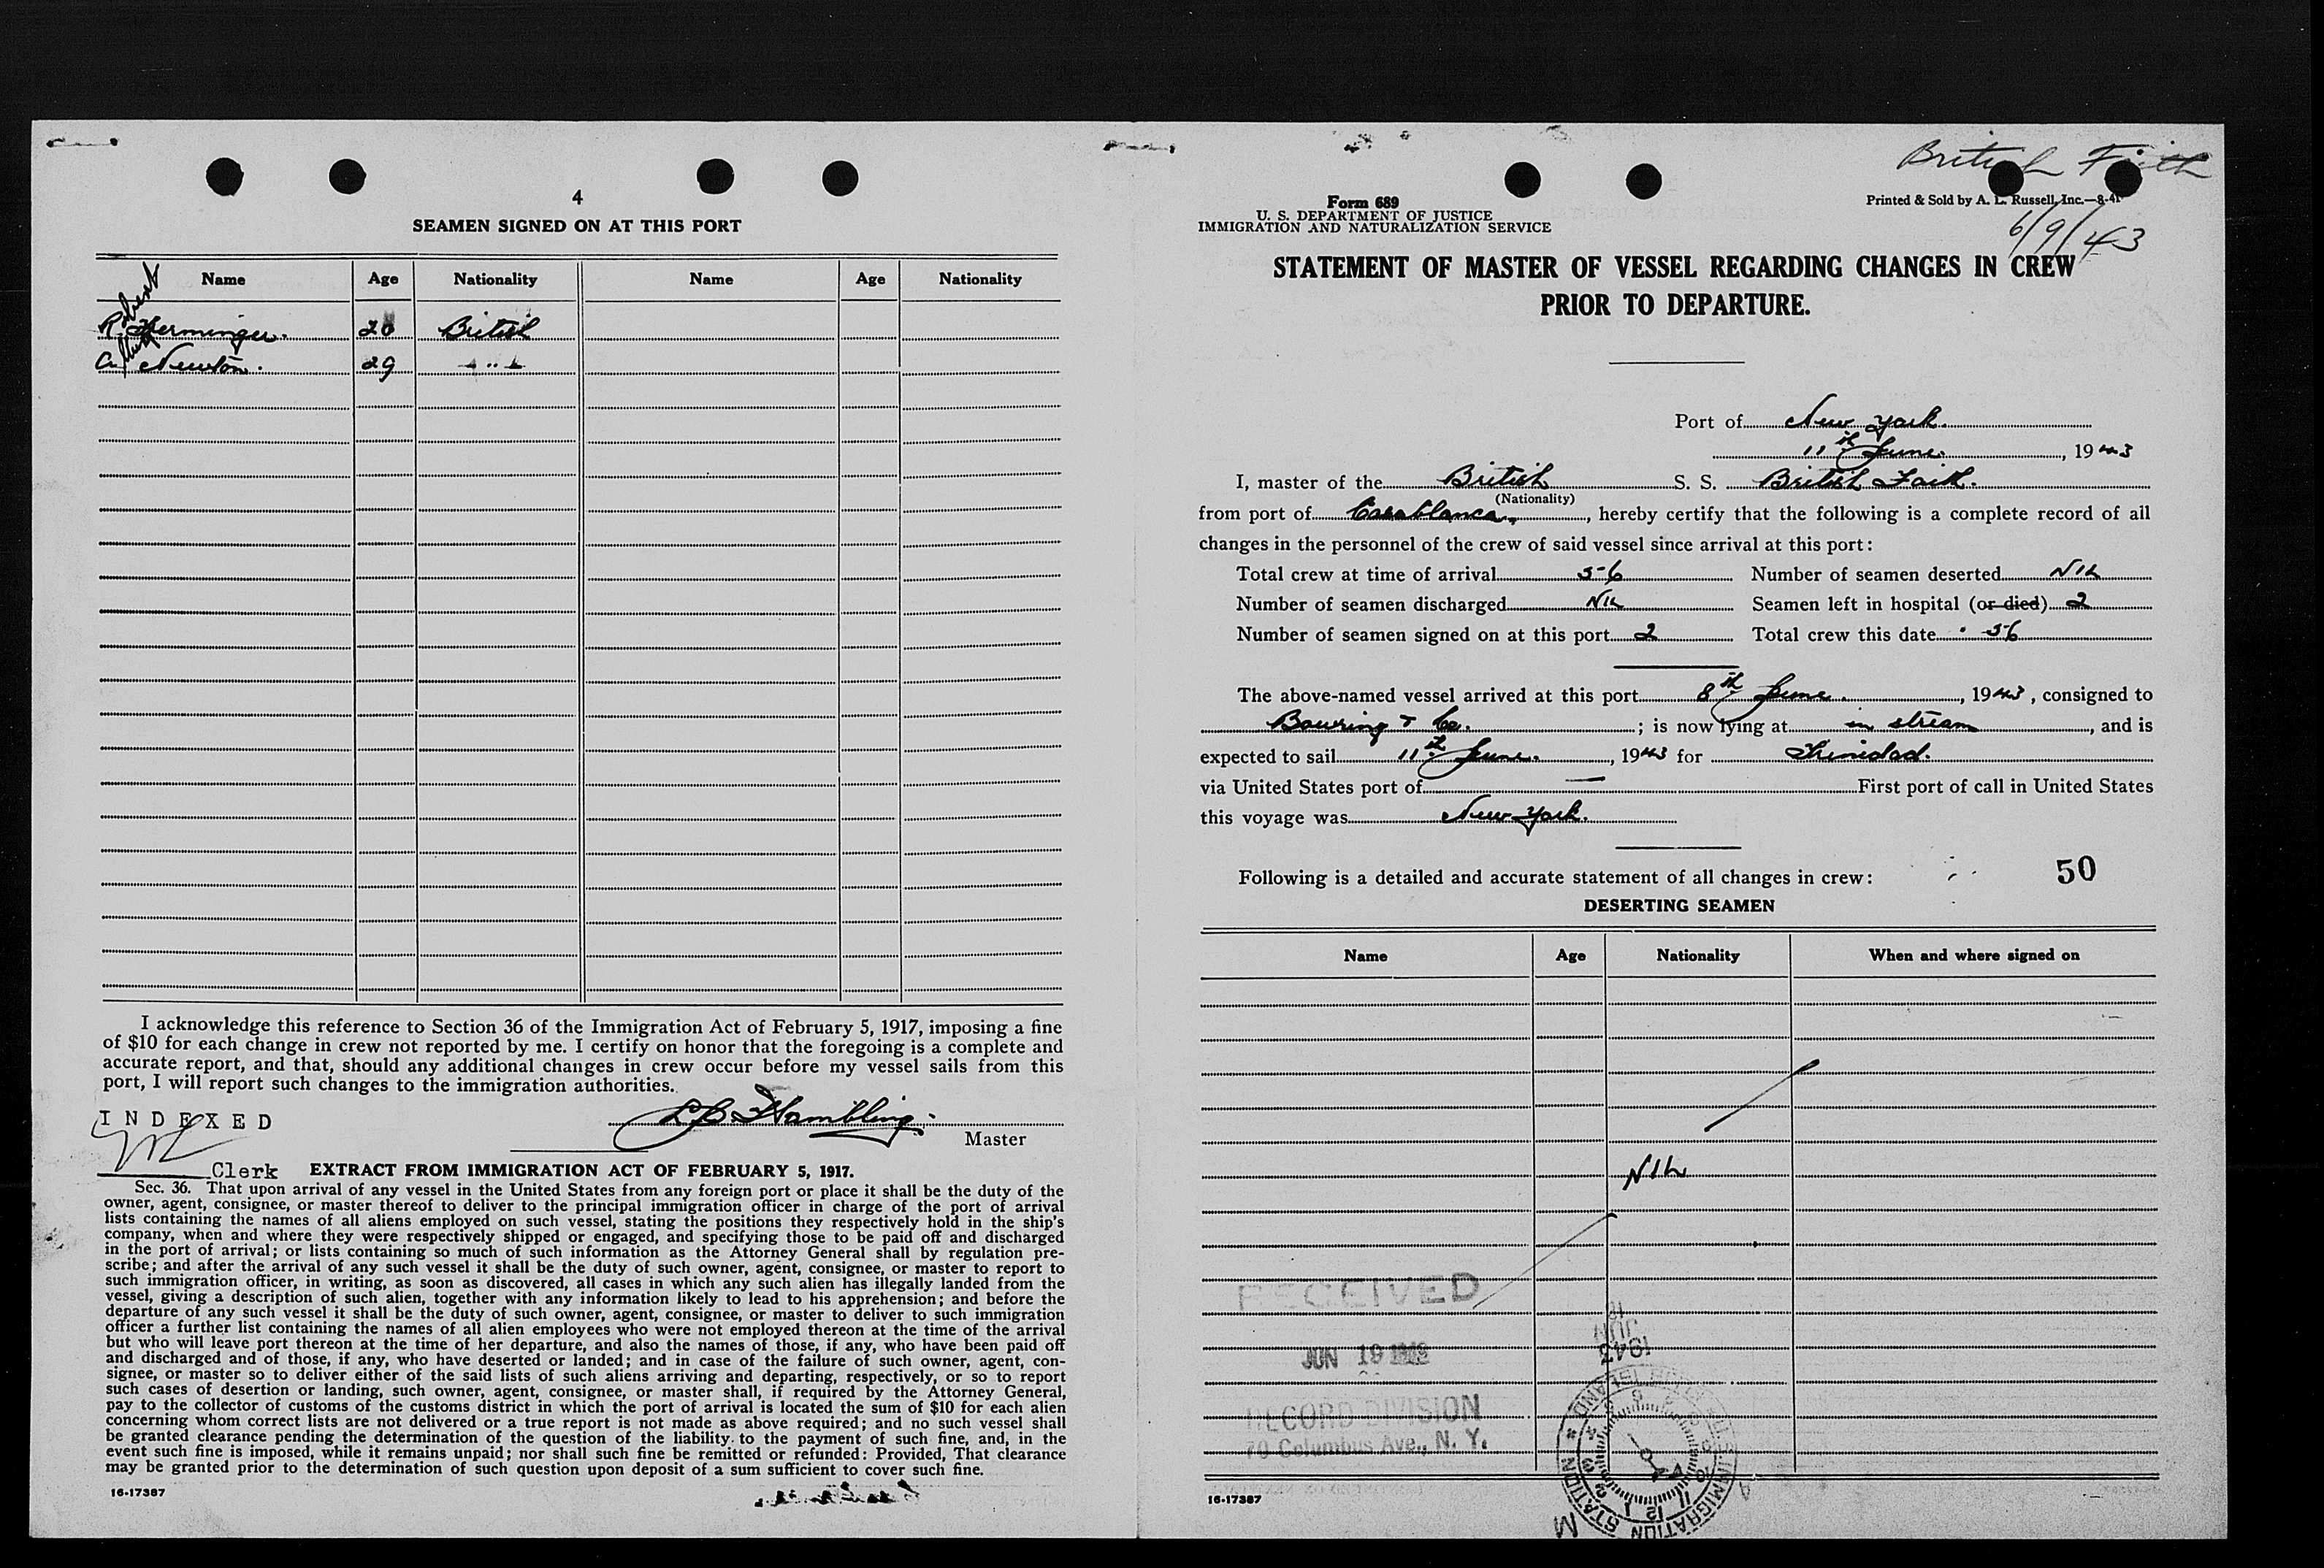 4
SEAMEN SIGNED ON AT THIS PORT
Name Age Nationality Name Age Nationality
Robert
R. Herminger. 20 British
A Newton. 29 " "
I acknowledge this reference to Section 36 of the Immigration Act of February 5, 1917, imposing a fine
of $10 for each change in crew not reported by me. I certify on honor that the foregoing is a complete and
accurate report, and that, should any additional changes in crew occur before my vessel sails from this
port, I will report such changes to the immigration authorities.
INDEXED
Master
Clerk EXTRACT FROM IMMIGRATION ACT OF FEBRUARY 5, 1917.
Sec. 36. That upon arrival of any vessel in the United States from any foreign port or place it shall be the duty of the
owner, agent, consignee, or master thereof to deliver to the principal immigration officer in charge of the port of arrival
lists containing the names of all aliens employed on such vessel, stating the positions they respectively hold in the ship's
company, when and where they were respectively shipped or engaged, and specifying those to be paid off and discharged
in the port of arrival; or lists containing so much of such information as the Attorney General shall by regulation pre-
scribe; and after the arrival of any such vessel it shall be the duty of such owner, agent, consignee, or master to report to
such immigration officer, in writing, as soon as discovered, all cases in which any such alien has illegally landed from the
vessel, giving a description of such alien, together with any information likely to lead to his apprehension; and before the
departure of any such vessel it shall be the duty of such owner, agent, consignee, or master to deliver to such immigration
officer a further list containing the names of all alien employees who were not employed thereon at the time of the arrival
but who will leave port thereon at the time of her departure, and also the names of those, if any, who have been paid off
and discharged and of those, if any, who have deserted or landed; and in case of the failure of such owner, agent, con-
signee, or master so to deliver either of the said lists of such aliens arriving and departing, respectively, or so to report
such cases of desertion or landing, such owner, agent, consignee, or master shall, if required by the Attorney General,
pay to the collector of customs of the customs district in which the port of arrival is located the sum of $10 for each alien
concerning whom correct lists are not delivered or a true report is not made as above required; and no such vessel shall
be granted clearance pending the determination of the question of the liability to the payment of such fine, and, in the
event such fine is imposed, while it remains unpaid; nor shall such fine be remitted or refunded: Provided, That clearance
may be granted prior to the determination of such question upon deposit of a sum sufficient to cover such fine.
16-17387
British Faith
Form 689
U. S. DEPARTMENT OF JUSTICE
IMMIGRATION AND NATURALIZATION SERVICE
Printed & Sold by A. L. Russell, Inc.—8-41
6/9/43
STATEMENT OF MASTER OF VESSEL REGARDING CHANGES IN CREW
PRIOR TO DEPARTURE.
Port of New York.
11th June, 1943
I, master of the British S. S. British Faith.
(Nationality)
from port of Casablanca, hereby certify that the following is a complete record of all
changes in the personnel of the crew of said vessel since arrival at this port:
Total crew at time of arrival 56 Number of seamen deserted NIL
Number of seamen discharged NIL Seamen left in hospital (or died) 2
Number of seamen signed on at this port 2 Total crew this date 56
The above-named vessel arrived at this port 8th June, 1943, consigned to
Bowring & Co.; is now lying at in stream, and is
expected to sail 11th June, 1943 for Trinidad.
via United States port of — First port of call in United States
this voyage was New York.
Following is a detailed and accurate statement of all changes in crew: 50
DESERTING SEAMEN
Name Age Nationality When and where signed on
NIL
RECEIVED
JUN 19 1943
RECORD DIVISION
70 Columbus Ave., N. Y.
JUN
1943
IMMIGRATION STATION
16-17387